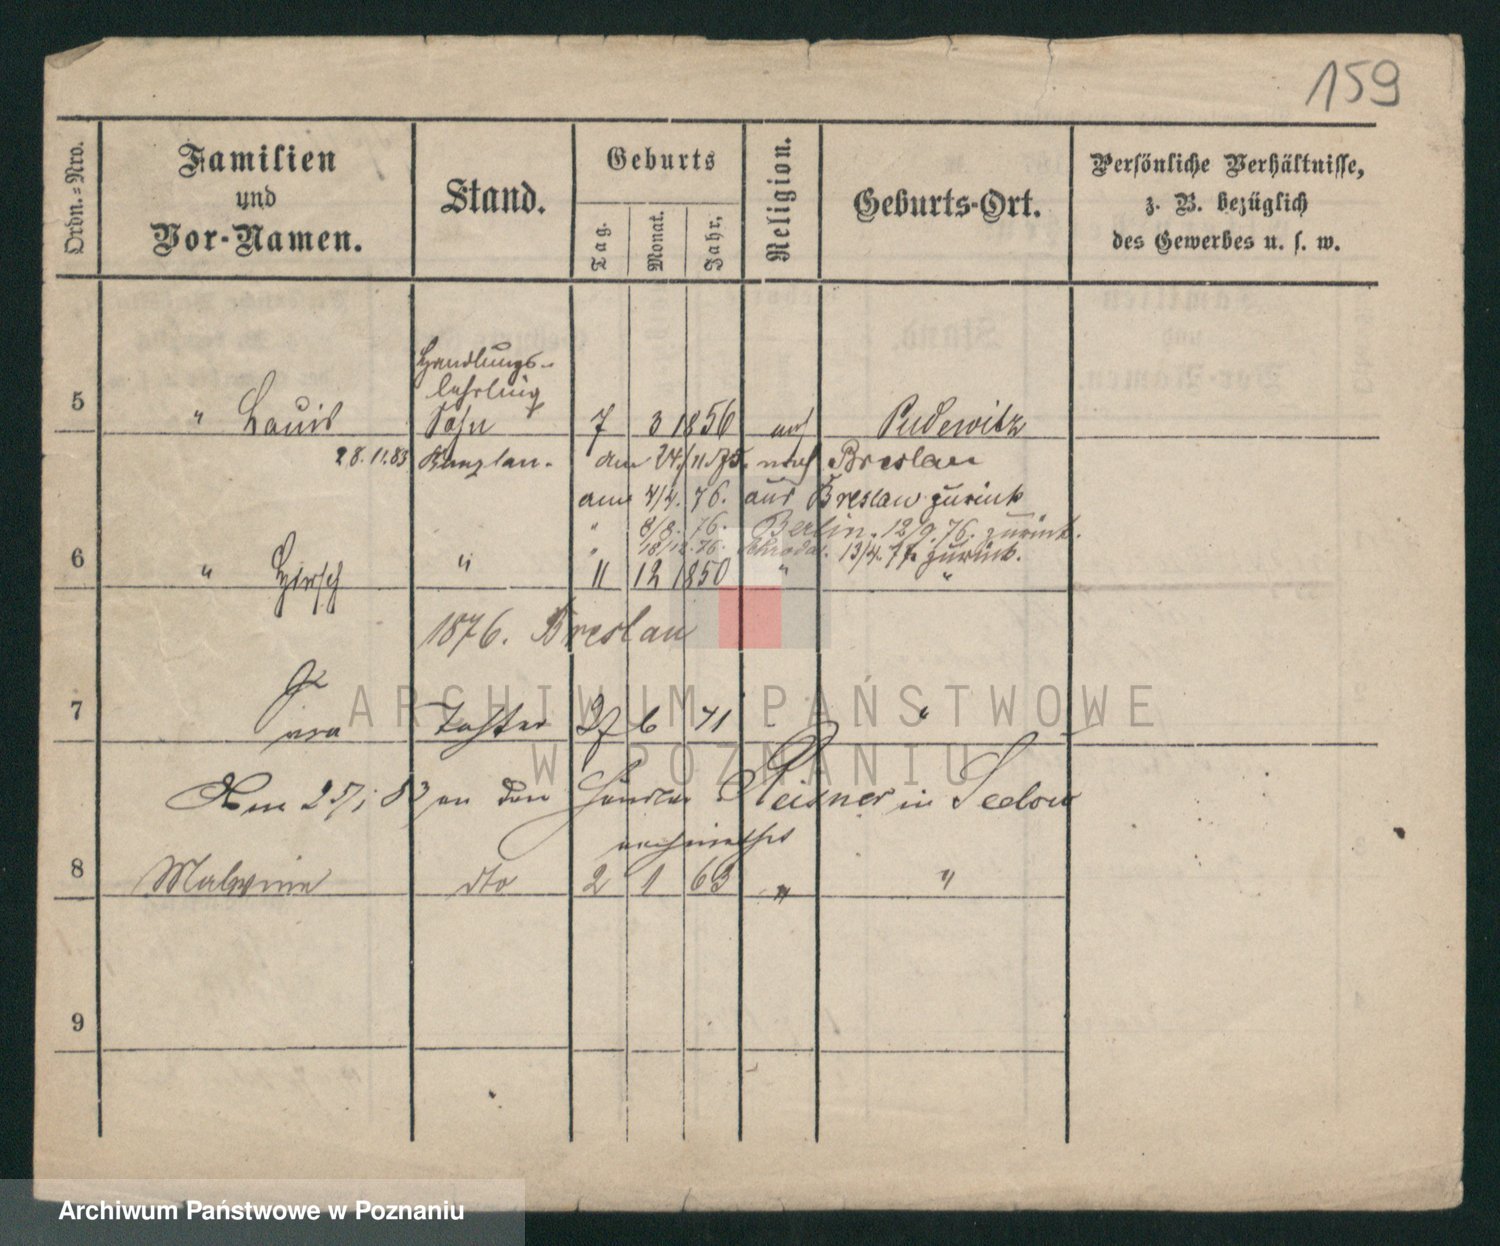 159
Ordn.=Nro.
Familien
und
Vor-Namen.
Stand.
Geburts
Tag.
Monat.
Jahr.
Religion.
Geburts-Ort.
Persönliche Verhältnisse,
z. B. bezüglich
des Gewerbes u. s. w.
Handlungs-
lehrling
5 " Louis Sohn 7 3 1856 Pudewitz
28.11.83 am 24/11 75. nach Breslau
am 4/4. 76. aus Breslau zurück
" 8/8. 76. Berlin. 12/9. 76. zurück.
" 18/12. 76. 13/4. 77. zurück.
6 " Hirsch " 11 12 1850 " "
1876. Breslau
7 Tochter 27 6 71 "
Am 25/1 83 an den Händler Reisner in
8 Malwine dto 2 1 63 " "
9
ARCHIWUM PAŃSTWOWE
W POZNANIU
Archiwum Państwowe w Poznaniu